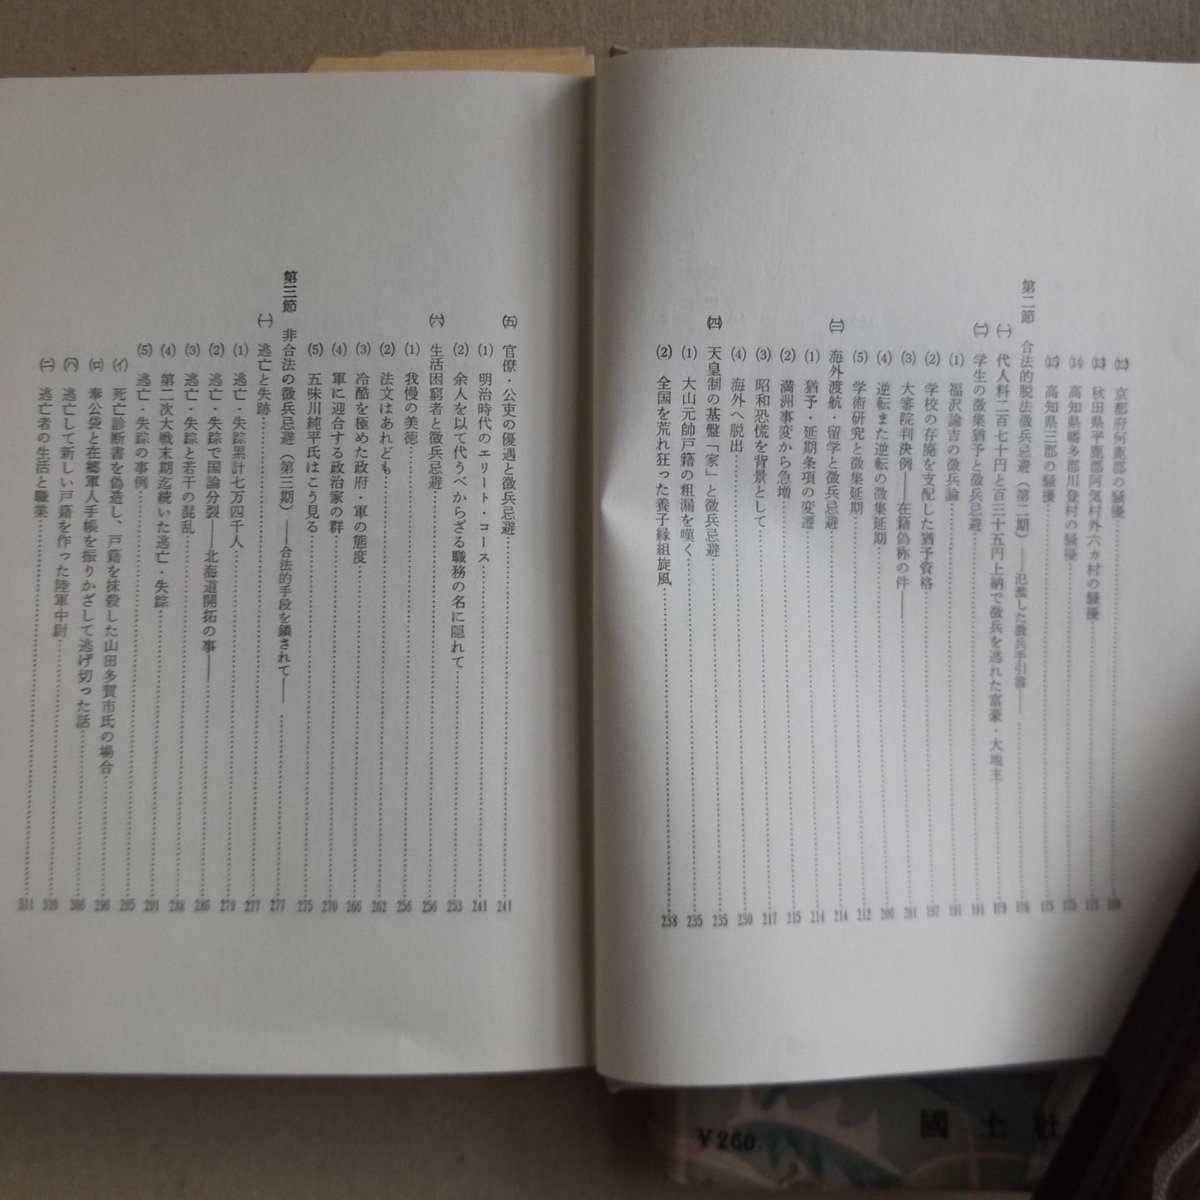 ⑿ 京都府何鹿郡の騒擾 169
⒀ 秋田県平鹿郡阿気村外六ヵ村の騒擾 173
⒁ 高知県幡多郡川登村の騒擾 175
⒂ 高知県三郡の騒擾 175
第二節 合法的脱法徴兵忌避(第二期)――氾濫した徴兵手引書―― 176
㈠ 代人料二百七十円と百三十五円上納で徴兵を逃れた富豪・大地主 179
㈡ 学生の徴集猶予と徴兵忌避 191
⑴ 福沢諭吉の徴兵論 191
⑵ 学校の存廃を支配した猶予資格 197
⑶ 大審院判決例――在籍偽称の件―― 201
⑷ 逆転また逆転の徴集延期 206
⑸ 学術研究と徴集延期 212
㈢ 海外渡航・留学と徴兵忌避 214
⑴ 猶予・延期条項の変遷 214
⑵ 満洲事変から急増 215
⑶ 昭和恐慌を背景として 217
⑷ 海外へ脱出 230
㈣ 天皇制の基盤「家」と徴兵忌避 235
⑴ 大山元帥戸籍の粗漏を嘆く 235
⑵ 全国を荒れ狂った養子縁組旋風 238
㈤ 官僚・公吏の優遇と徴兵忌避 241
⑴ 明治時代のエリート・コース 241
⑵ 余人を以て代うべからざる職務の名に隠れて 253
㈥ 生活困窮者と徴兵忌避 256
⑴ 我慢の美徳 256
⑵ 法文はあれども 262
⑶ 冷酷を極めた政府・軍の態度 266
⑷ 軍に迎合する政治家の群 270
⑸ 五味川純平氏はこう見る 275
第三節 非合法の徴兵忌避(第三期)――合法的手段を鎖されて―― 277
㈠ 逃亡と失跡 277
⑴ 逃亡・失踪累計七万四千人 277
⑵ 逃亡・失踪で国論分裂――北海道開拓の事―― 279
⑶ 逃亡・失踪と若干の混乱 286
⑷ 第二次大戦末期迄続いた逃亡・失踪 288
⑸ 逃亡・失踪の事例 291
(イ) 死亡診断書を偽造し、戸籍を抹殺した山田多賀市氏の場合 295
(ロ) 奉公袋と在郷軍人手帳を振りかざして逃げ切った話 296
(ハ) 逃亡して新しい戸籍を作った陸軍中尉 306
(ニ) 逃亡者の生活と職業 310
311
¥260
國土社